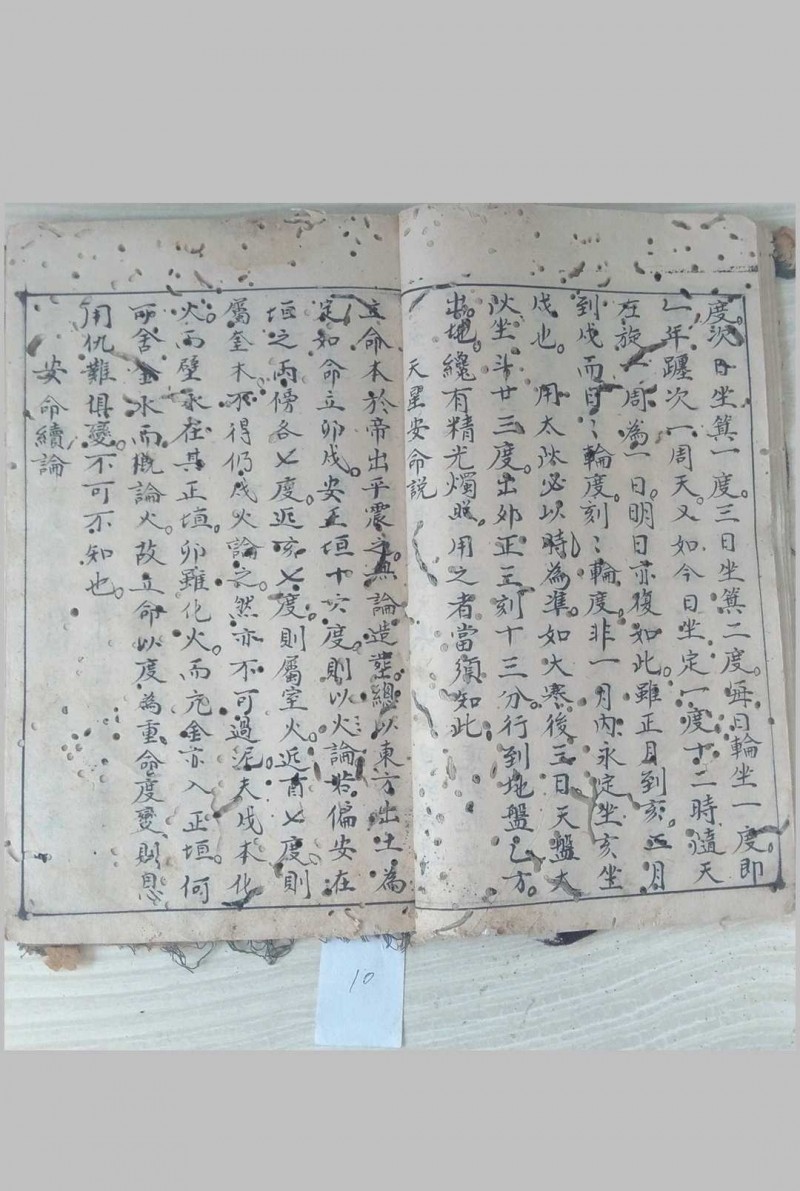 度。次日坐箕一度。三日坐箕二度。每日輪坐一度。即
一年躔次一周天。又如今日坐定一度。十二時隨天
左旋一周為一日。明日亦復如此。雖正月到亥。正月
到戌而日〻輪度。刻〻輪度。非一月內永定坐亥坐
戌也。用太陽必以時為準。如大寒後三日天盤太
陽坐斗廿三度。出外正三刻十三分。行到地盤乙方。
出地。纔有精光燭照。用之者當須知此
天星安命説
立命本於帝出乎震之。無論造塟。總以東方出土為
定。如命立卯戌。安正垣十六度。則以火論。若偏安在
垣之両傍各七度。近亥七度則屬室火。近酉七度則
屬奎木。不得仍戌火論之。然亦不可過泥。夫戌本化
火。而壁水在其正垣。卯雖化火。而亢金亦入正垣。何
可舍金水而概論火。故立命以度為重。命度變則恩
用仇難俱變。不可不知也。
安命續論
10